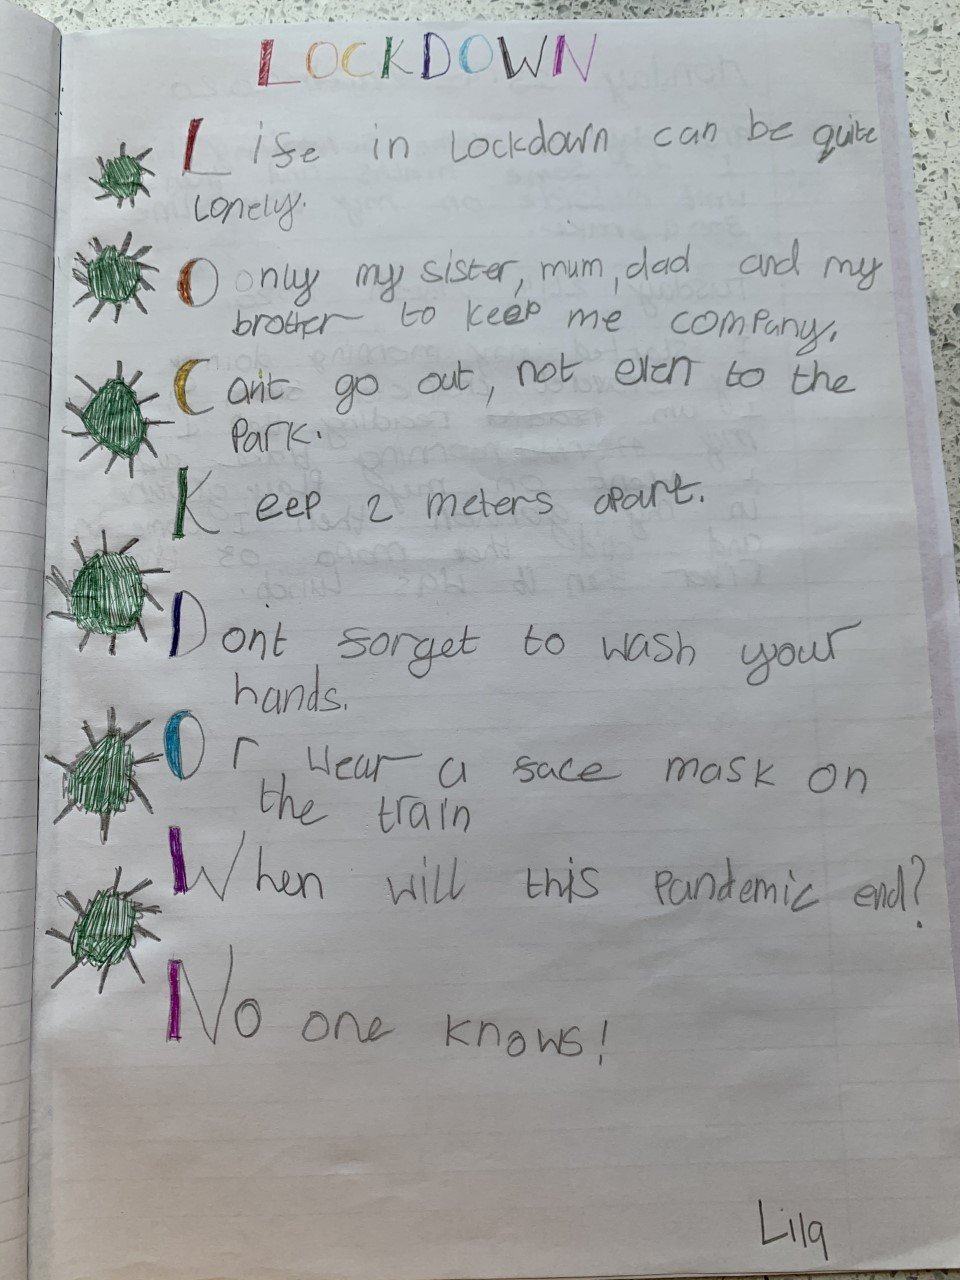 LOCKDOWN
Life in Lockdown can be quite
Lonely.
Only my sister, mum, dad and my
brother to keep me company.
Can't go out, not even to the
Park.
Keep 2 meters apart.
Dont forget to wash your
hands.
Or wear a face mask on
the train
When will this Pandemic end?
No one knows!
Lila